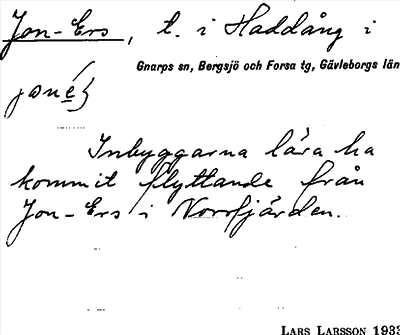 Jon-Ers, t. i Haddång i
Gnarps sn, Bergsjö och Forsa tg, Gävleborgs län
Inbyggarna lära ha
kommit flyttande från
Jon-Ers i Norrfjärden.
LARS LARSSON 1933